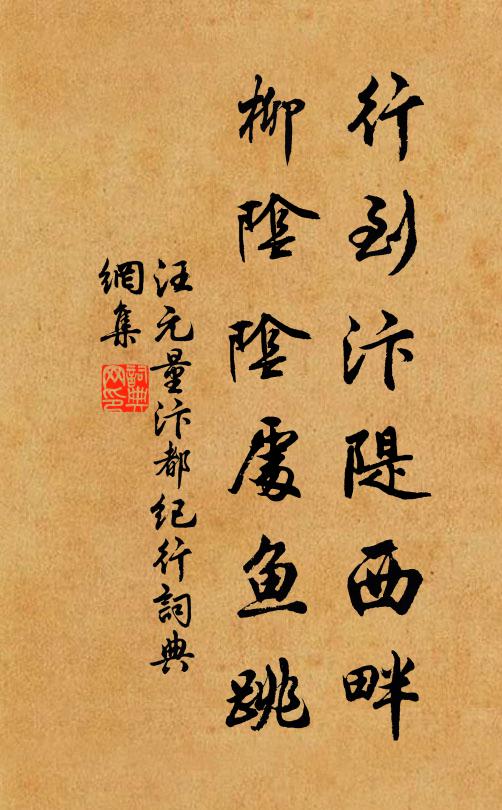 行到汴隄西畔
柳陰陰處魚跳
汪元量汴都紀行詞典
網集
詞典
网印